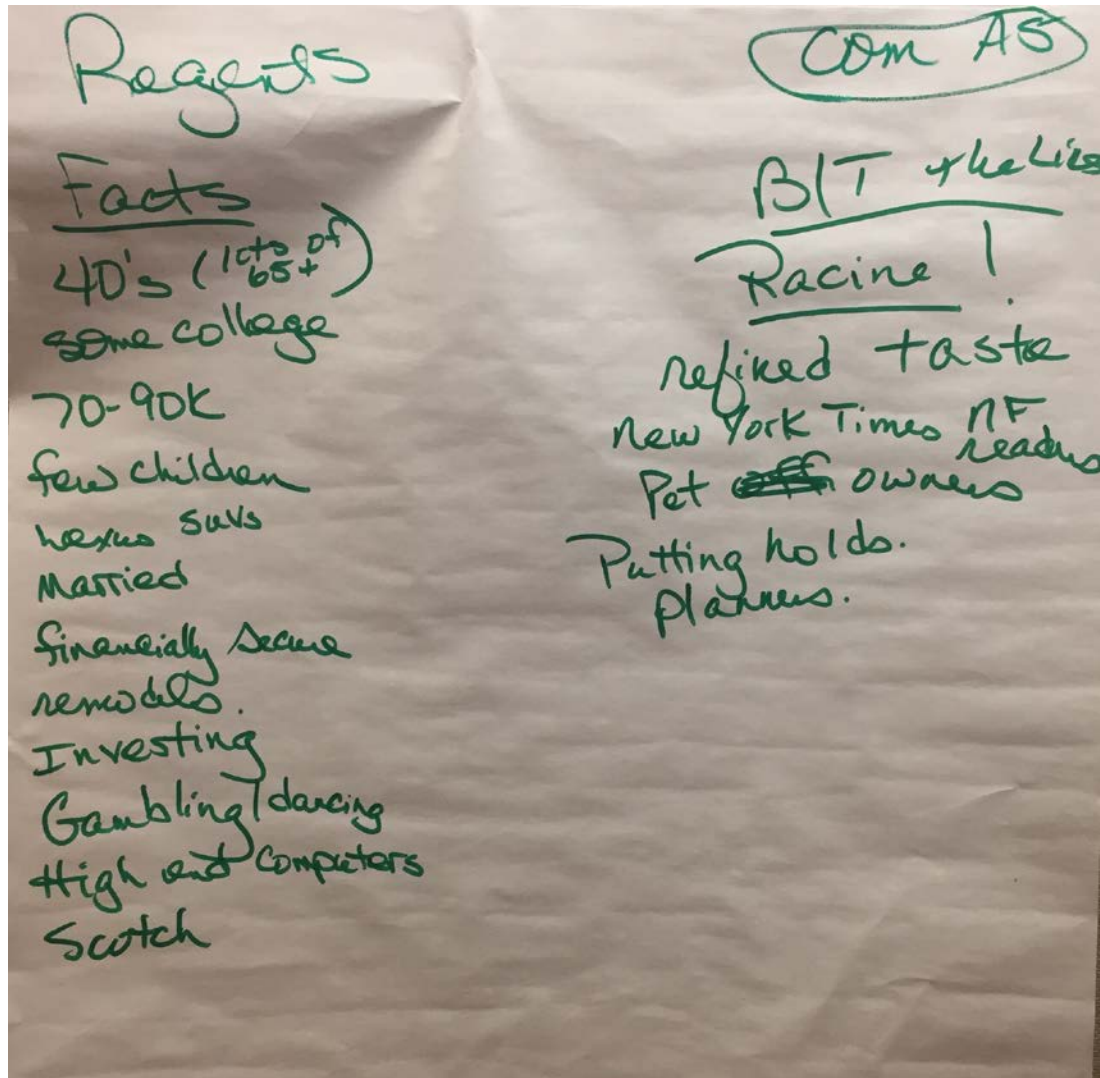 Regents
Facts
40's (lots of
65+)
some college
70-90K
few children
Lexus SUVs
Married
financially secure
remodels.
Investing
Gambling/dancing
High end computers
Scotch
Com AS
B/T
Racine!
refined taste
New York Times NF
readers
Pet owners
Putting holds.
planners.